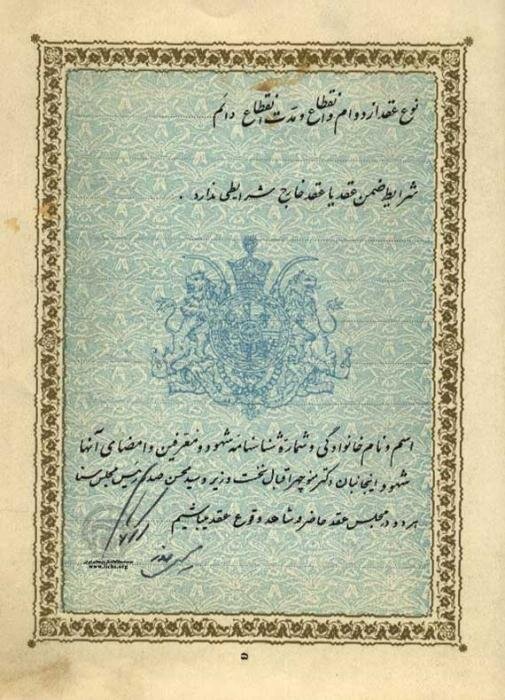 نوع عقد از دوام و انقطاع و مدت انقطاع دائم
شرایط ضمن عقد یا عقد خارج شرایطی ندارد .
اسم و نام خانوادگی و شمارهٔ شناسنامه شهود و معرفین و امضای آنها
شهود اینجانبان دکتر منوچهر اقبال نخست وزیر و سید محسن صدر رئیس مجلس سنا
هر دو در مجلس عقد حاضر و شاهد وقوع عقد میباشیم
www.iichs.org
۵